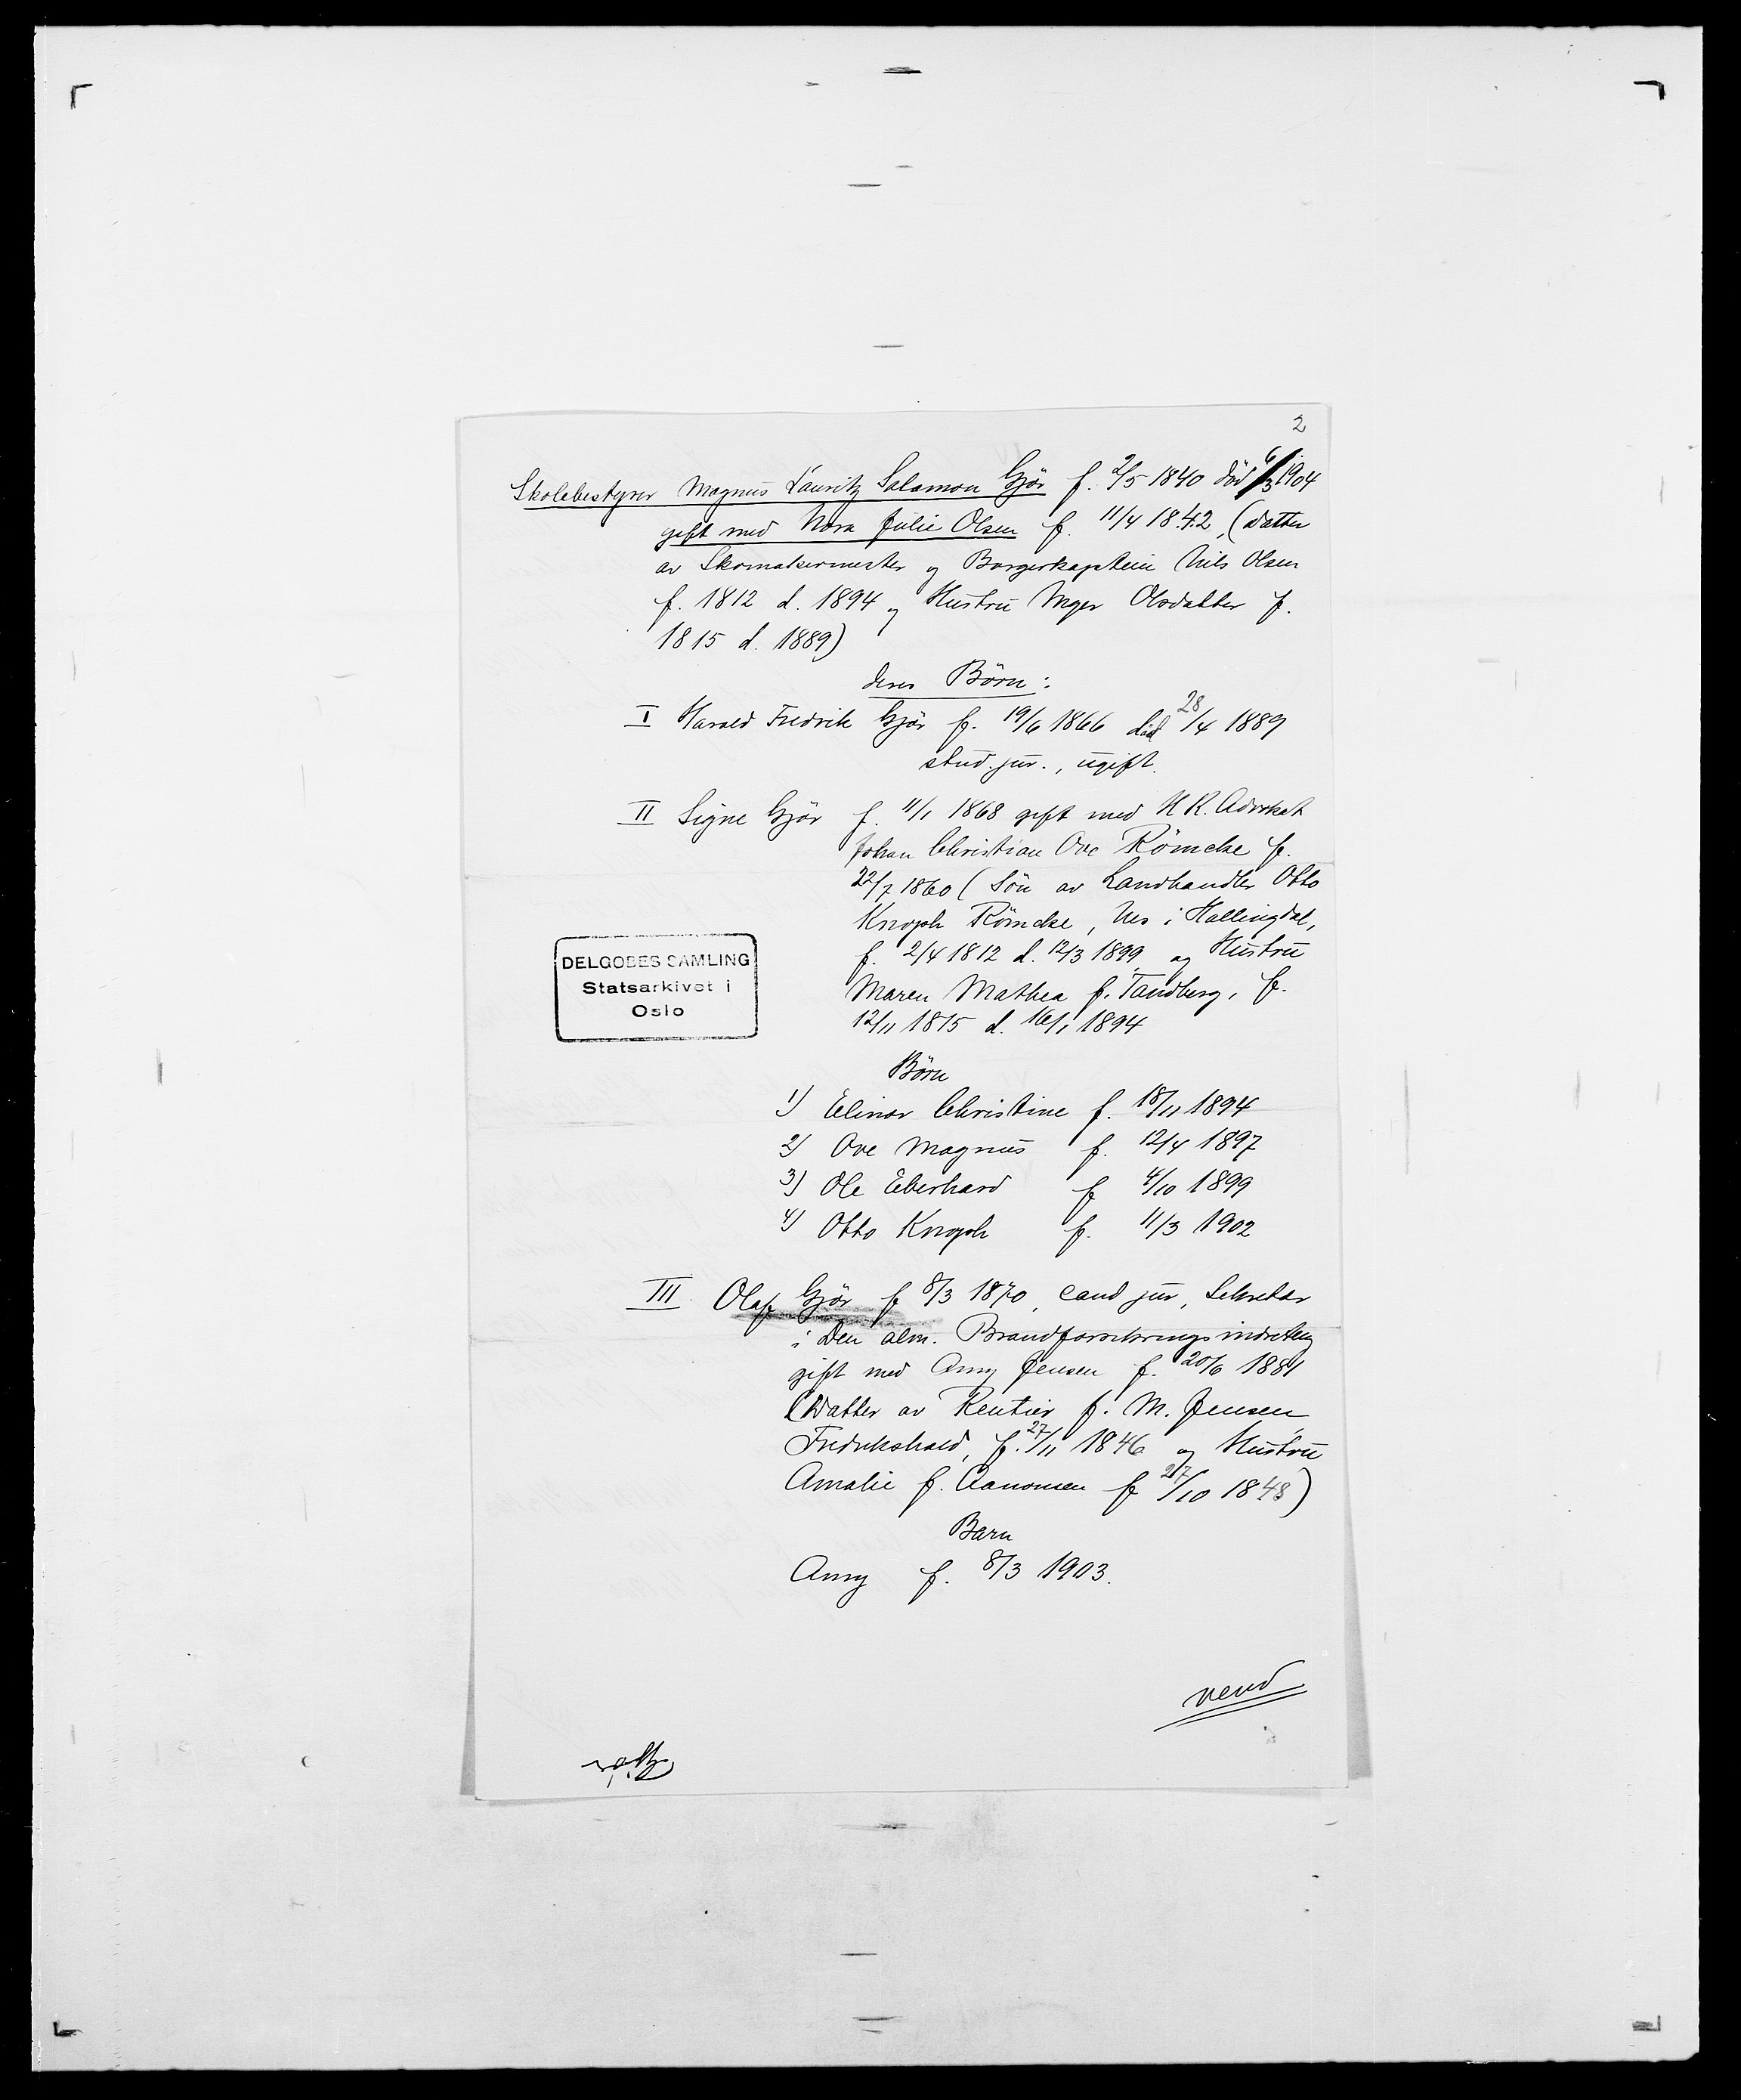 2
Skolebestyrer Magnus Lauritz Salamon Gjör f. 2/5 1840 död 6/3 1904
gift med Nora Julie Olsen f. 11/4 1842, (Datter
av Skomakermester og Borgerkaptein Nils Olsen
f. 1812 d. 1894 og Hustru Inger Olsdatter f.
1815 d. 1889)
deres Börn:
I Harald Fredrik Gjör f. 19/6 1866 död 28/4 1889
stud. jur., ugift.
II Signe Gjör f. 11/1 1868 gift med H R. Advokat
Johan Christian Ove Römcke f.
22/7 1860 (Sön av Landhandler Otto
Knoph Römcke, Nes i Hallingdal,
f. 2/4 1812 d. 12/3 1899 og Hustru
Maren Mathea f. Tandberg, f.
12/11 1815 d. 16/1 1894
DELGOBES SAMLING
Statsarkivet i
Oslo
Börn
1) Elinor Christine f. 18/11 1894
2) Ove Magnus f. 12/4 1897
3) Ole Eberhard f 4/10 1899
4) Otto Knoph f. 11/3 1902
III Olaf Gjör f 8/3 1870, cand jur, Sekretær
i Den alm. Brandforsikringsindretng
gift med Anny Jensen f. 20/6 1881
(Datter av Rentier J. M. Jensen,
Fredrikshald, f. 27/11 1846 og Hustru
Amalie f. Aanonsen f 27/10 1848)
Barn
Anny f. 8/3 1903.
vend